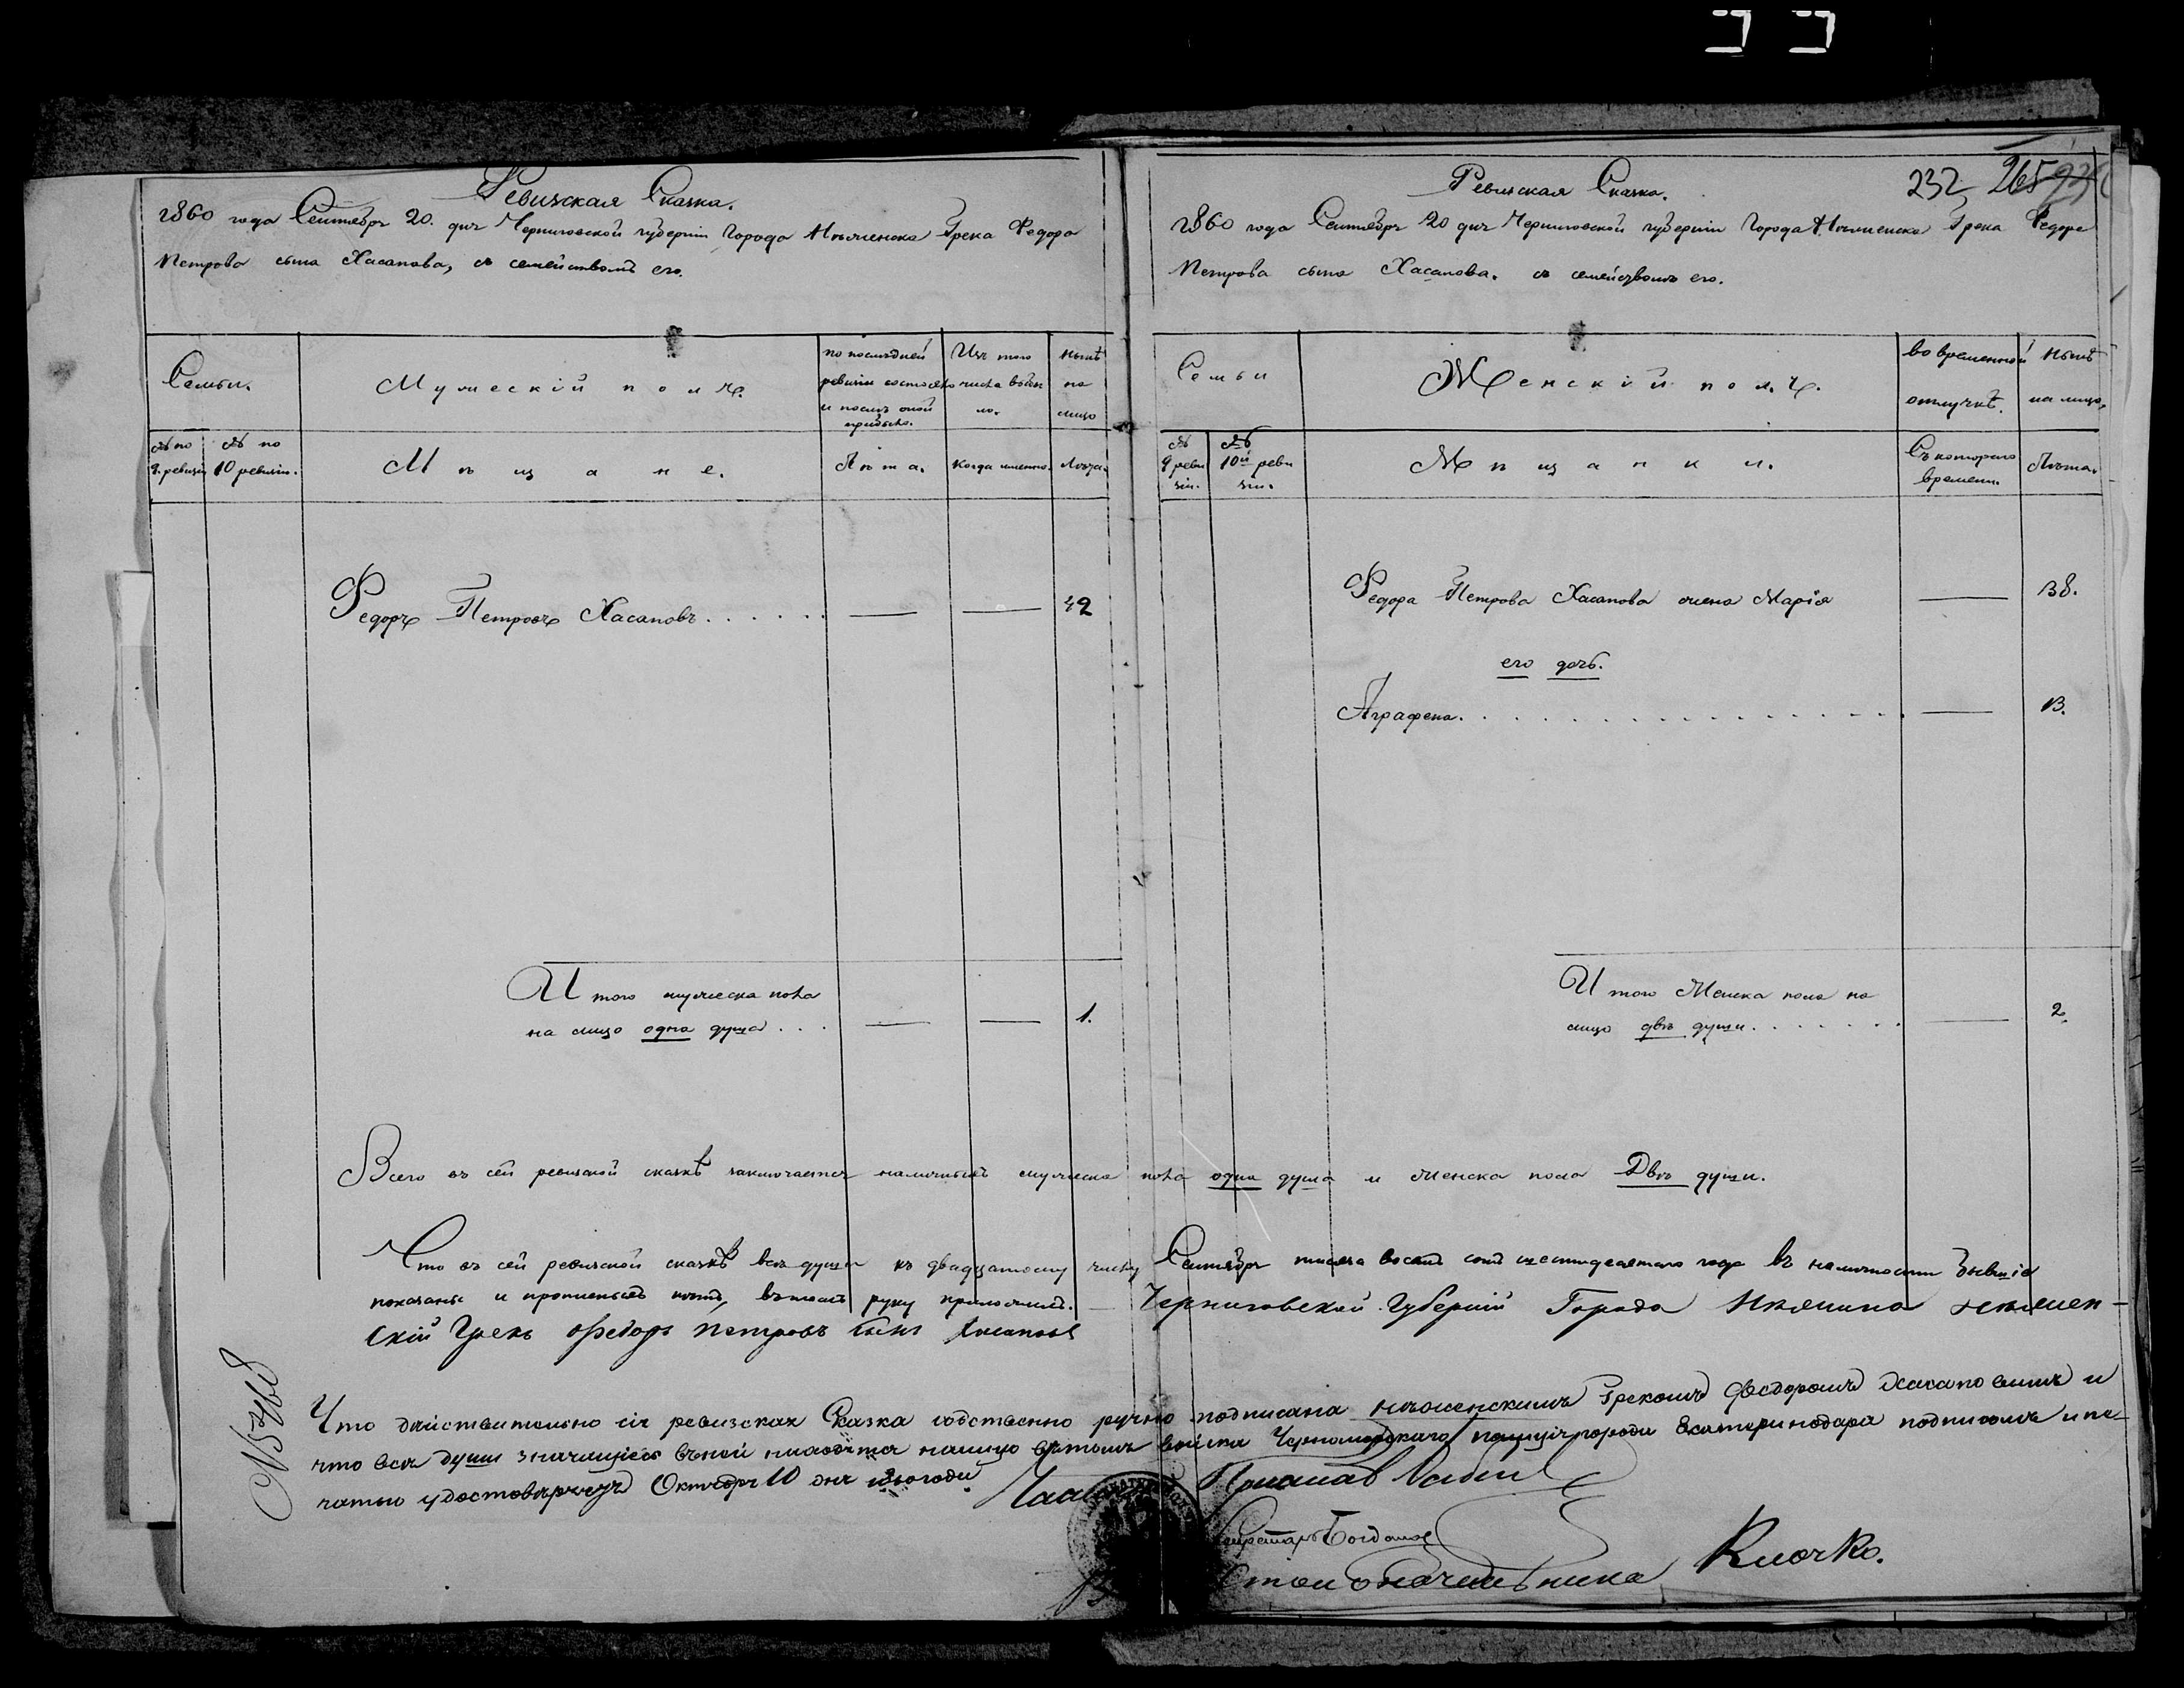 Ревизская Сказка.
1860 года Сентября 20. дня Черниговской губерніи Города Нѣжинска Грека Федора
Петрова сына Хасапова, съ семействомъ его.
Семьи.
Мужескій полъ.
по послѣдней ревизіи состояло и послѣ оной прибыло.
Изъ того числа выбыло.
Нынѣ на лицо
№ по 9. ревизіи
№ по 10 ревизіи.
Мѣщане.
Лѣта.
Когда именно.
Лѣта.
Федоръ Петровъ Хасаповъ . . . . . . — — 42
И того мужеска пола
на лицо одна душа . . . — — 1.
232 265
Ревизская Сказка.
1860 года Сентября 20 дня Черниговской губерніи Города Нѣжинска Грека Федора
Петрова сына Хасапова. съ семействомъ его.
Семьи
Женскій полъ.
Во временной отлучкѣ.
Нынѣ на лицо,
№ 9 ревизіи.
№ 10й ревизіи.
Мѣщанки.
Съ котораго времени.
Лѣта.
Федора Петрова Хасапова жена Марія — 38.
его дочь.
Аграфена. . . . . . . . . . . . . . . . — 13.
И того Женска пола на
лицо двѣ души. . . . . . . — 2.
Всего въ сей ревизской сказкѣ заключается наличныхъ мужеска пола одна душа и женска пола Двѣ души.
Что въ сей ревизской сказкѣ всѣ души къ двадцатому числу Сентября тысяча восемь сотъ шестидесятаго года въ наличности бывшіе
показаны и прописныхъ нѣтъ, въ томъ руку приложилъ. — Черниговской Губерніи Города Нѣжина нѣжен-
скій Грекъ Федоръ Петровъ сынъ Хасаповъ
№ 5468
Что дѣйствительно сія ревизская Сказка собственно ручно подписана нѣженскимъ Грекомъ Федоромъ Хасаповымъ и
что всѣ души значащіеся въ ней находятся налицо въ томъ войска Черноморскаго полиція города Екатеринодара подписомъ и пе-
чатью удостовѣряетъ Октября 10 дня 1860 года.
Секретарь Богданов
Столоначальника Клочко.